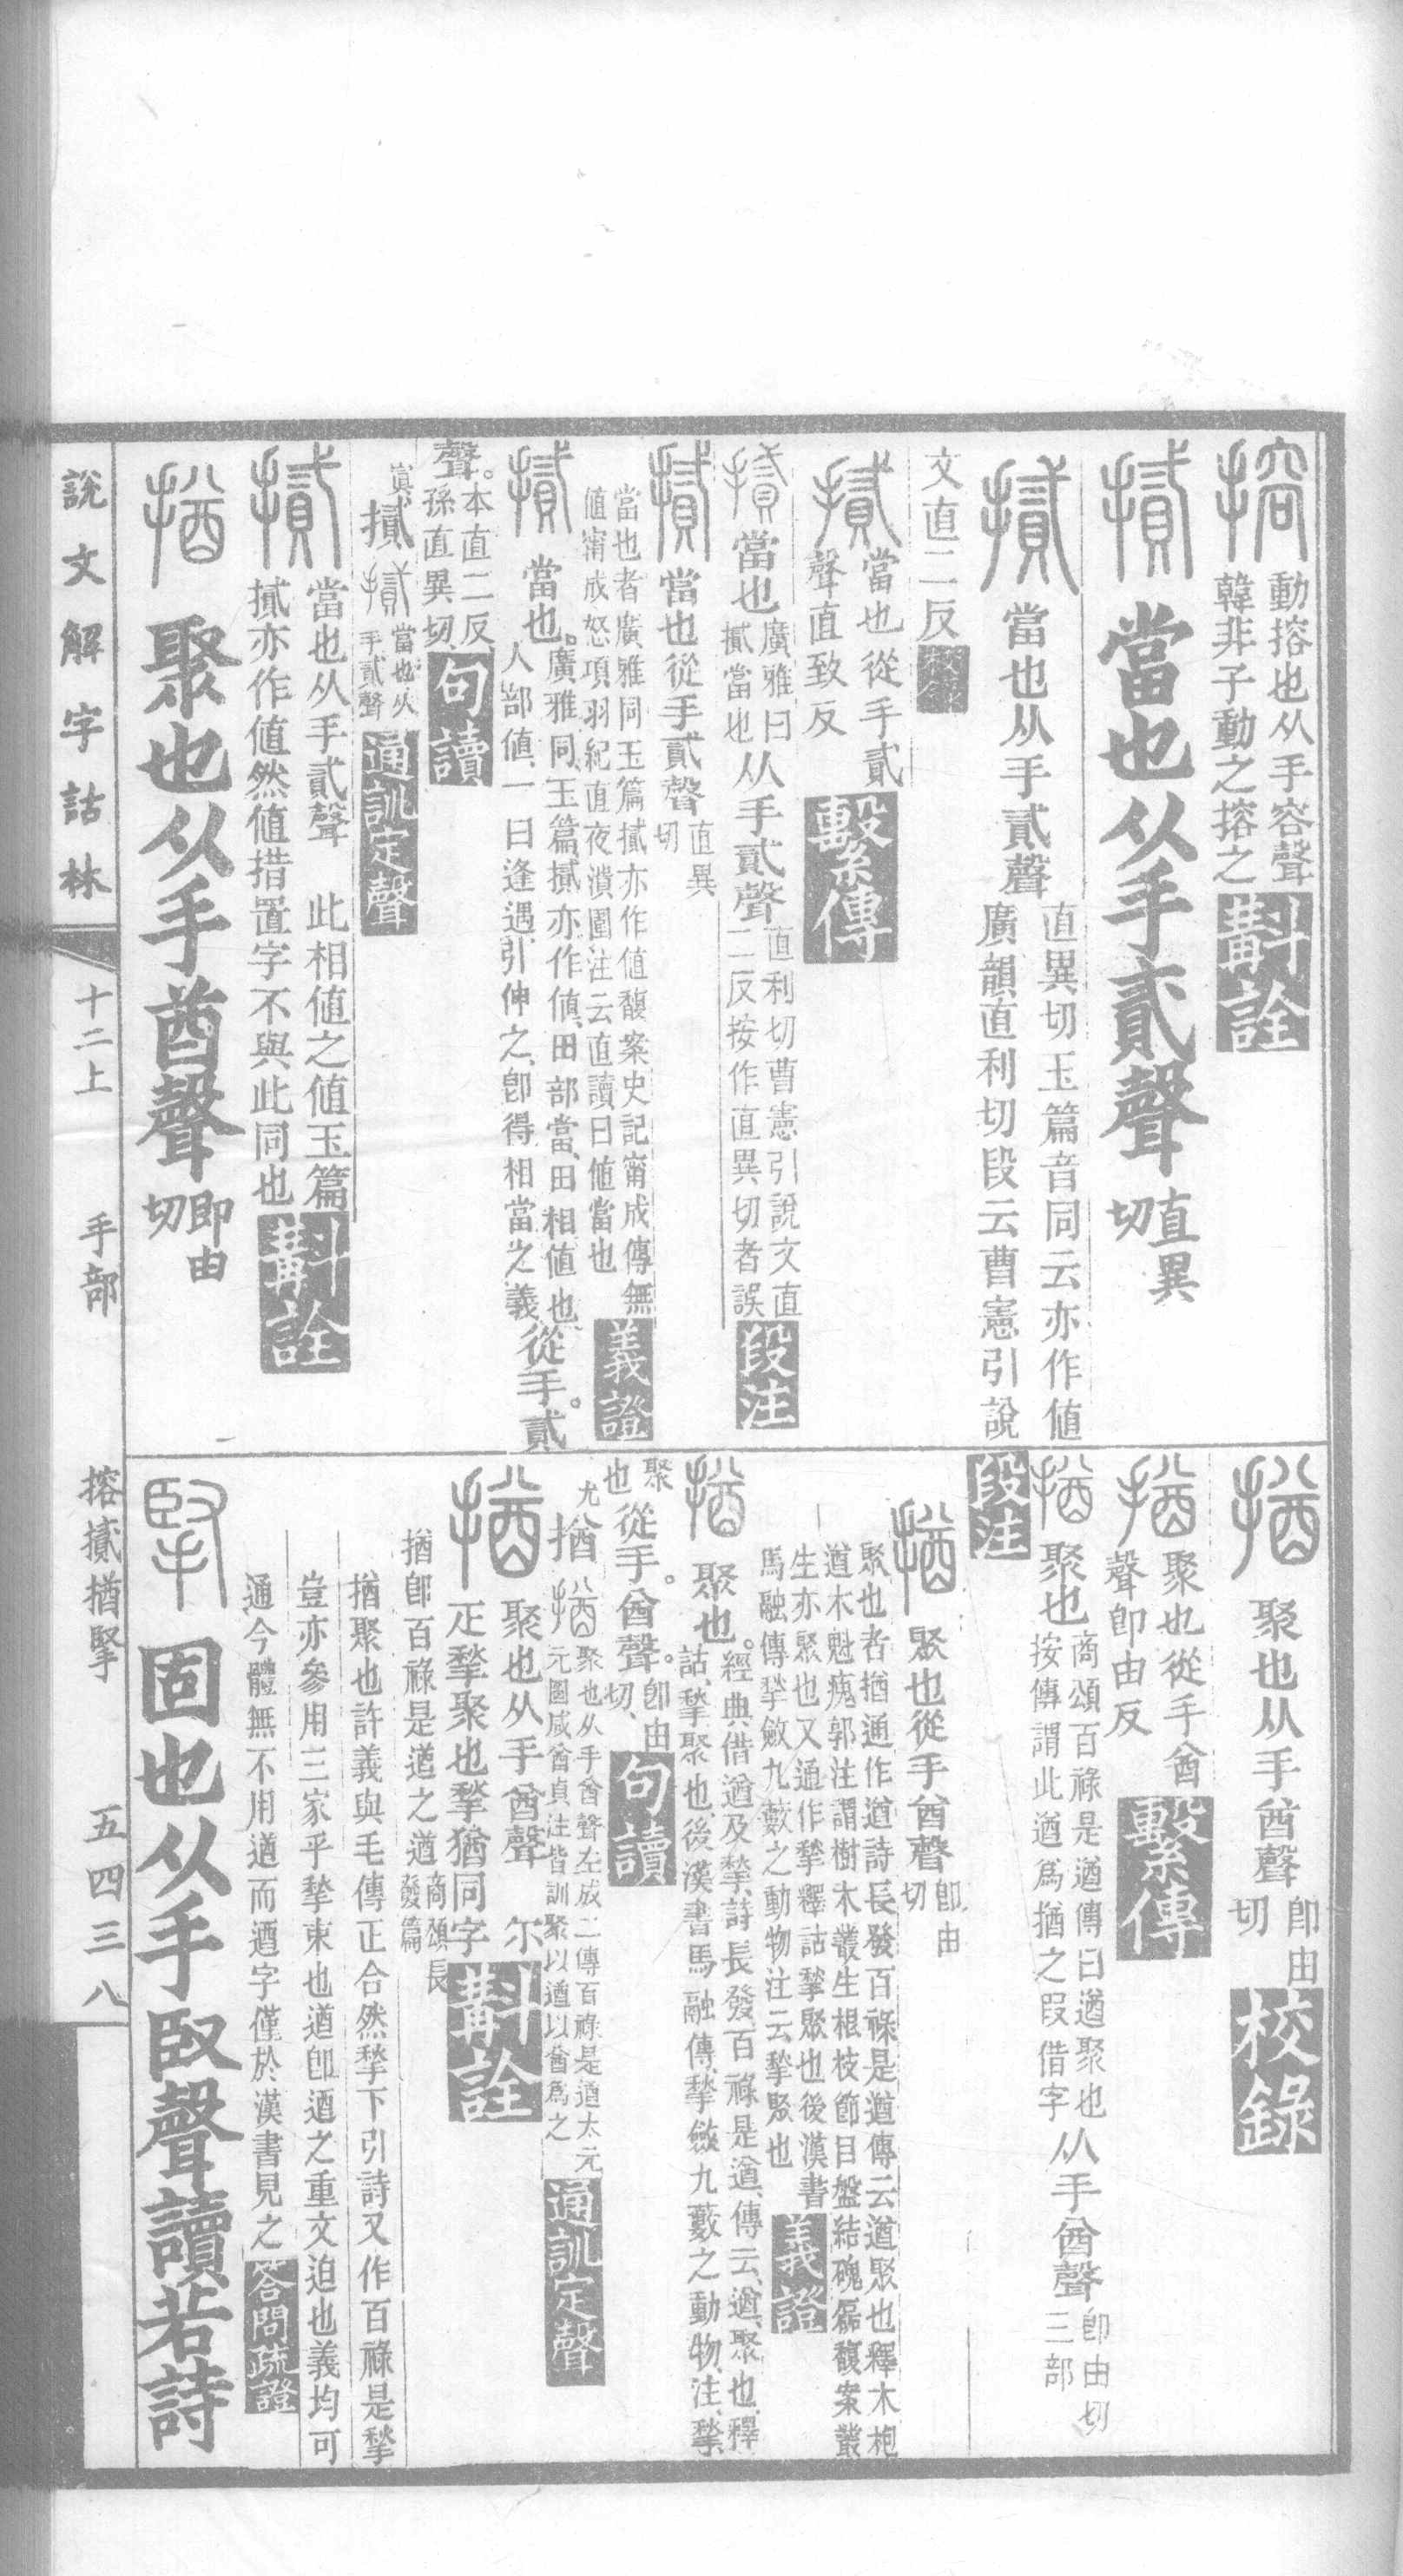 搈動搈也从手容聲
韓非子動之搈之斠詮
㨖當也从手貳聲直異切
㨖當也从手貳聲直異切玉篇音同云亦作値
廣韻直利切段云曹憲引說
文直二反校錄
㨖當也從手貳
聲直致反繫傳
㨖當也廣雅曰㨖當也从手貳聲直利切曹憲引說文直二反按作直異切者誤段注
㨖當也從手貳聲直異切
當也者廣雅同玉篇㨖亦作値馥案史記甯成傳無
値甯成怒項羽紀直夜潰圍注云直讀曰値當也義證
㨖當也。廣雅同、玉篇、㨖亦作値、田部當、田相値也、
人部値、一曰逢遇、引伸之、卽得相當之義、從手。貳
聲。本直二反、孫直異切、句讀
㨖㨖當也从手貳聲通訓定聲
㨖當也从手貳聲 此相値之値玉篇
㨖亦作値然値措置字不與此同也斠詮
揂聚也从手酋聲卽由切
說文解字詁林
十二上
手部
搈㨖揂掔
五四三八
揂聚也从手酋聲卽由切校錄
揂聚也從手酋
聲卽由反繫傳
揂聚也商頌百祿是遒傳曰遒聚也按傳謂此遒爲揂之叚借字从手酋聲卽由切三部
段注
揂聚也從手酋聲卽由切
聚也者揂通作遒詩長發百祿是遒傳云遒聚也釋木枹
遒木魁瘣郭注謂樹木叢生根枝節目盤結磈磊馥案叢
生亦聚也又通作揫釋詁揫聚也後漢書
馬融傳揫斂九藪之動物注云揫聚也義證
揂聚也。經典借遒及揫、詩長發、百祿是遒、傳云、遒、聚也、釋
詁、揫聚也、後漢書馬融傳、揫斂九藪之動物、注、揫、
聚也從手。酋聲。卽由切、句讀
揂揂聚也从手酋聲左成二傳百祿是遒太元
元圖咸酋貞注皆訓聚以遒以酋爲之通訓定聲
揂聚也从手酋聲 尔
疋揫聚也揫猶同字斠詮
揂卽百祿是遒之遒商頌長發篇
揂聚也許義與毛傳正合然揫下引詩又作百祿是揫
豈亦參用三家乎揫束也遒卽逎之重文迫也義均可
通今體無不用遒而逎字僅於漢書見之答問疏證
掔固也从手臤聲讀若詩